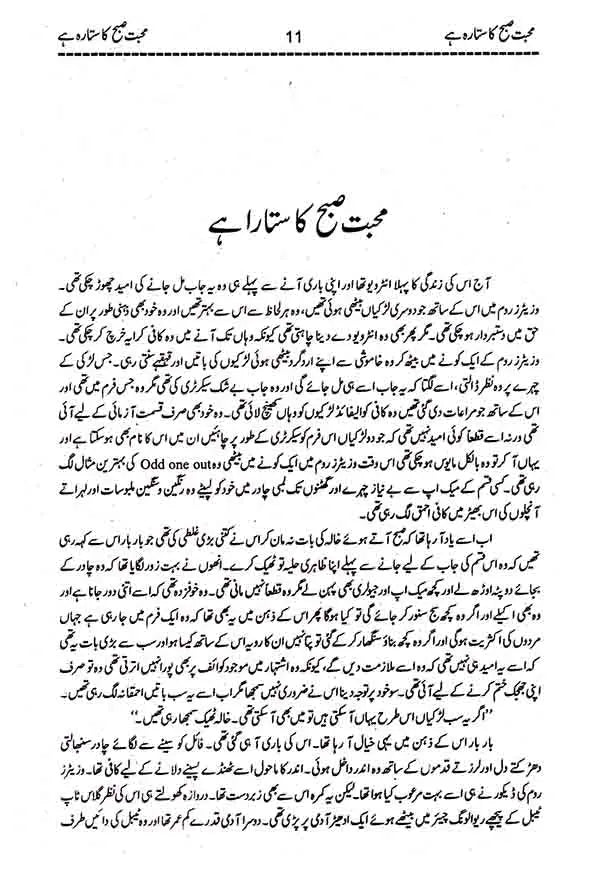 محبت صبح کا ستارہ ہے 11 محبت صبح کا ستارہ ہے
محبت صبح کا ستارا ہے
آج اس کی زندگی کا پہلا انٹرویو تھا اور اپنی باری آنے سے پہلے ہی وہ یہ جاب مل جانے کی امید چھوڑ چکی تھی۔
وزیٹرز روم میں اس کے ساتھ جو دوسری لڑکیاں بیٹھی ہوئی تھیں، وہ ہر لحاظ سے اس سے بہتر تھیں اور وہ خود بھی ذہنی طور پر ان کے
حق میں دستبردار ہو چکی تھی۔ مگر پھر بھی وہ انٹرویو دے دینا چاہتی تھی کیونکہ وہاں تک آنے میں وہ کافی کرایہ خرچ کر چکی تھی۔
وزیٹرز روم کے ایک کونے میں بیٹھ کر وہ خاموشی سے اپنے اردگرد بیٹھی ہوئی لڑکیوں کی باتیں اور قہقہے سنتی رہی۔ جس لڑکی کے
چہرے پر وہ نظر ڈالتی، اسے لگتا کہ یہ جاب اسے ہی مل جائے گی اور وہ جاب بے شک سیکرٹری کی تھی مگر وہ جس فرم میں تھی اور
اس کے ساتھ جو مراعات دی گئی تھیں وہ کافی کوالیفائڈ لڑکیوں کو وہاں کھینچ لائی تھی۔ وہ خود بھی صرف قسمت آزمائی کے لیے آئی
تھی ورنہ اسے قطعاً کوئی امید نہیں تھی کہ جو دو لڑکیاں اس فرم کو سیکرٹری کے طور پر چاہئیں ان میں اس کا نام بھی ہو سکتا ہے اور
یہاں آ کر تو وہ بالکل مایوس ہو چکی تھی اس وقت وزیٹرز روم میں ایک کونے میں بیٹھی وہ Odd one out کی بہترین مثال لگ
رہی تھی۔ کسی قسم کے میک اپ سے بے نیاز چہرے اور گھٹنوں تک لمبی چادر میں خود کو لپیٹے وہ رنگین و سنگین ملبوسات اور لہراتے
آنچلوں کی اس بھیڑ میں کافی احمق لگ رہی تھی۔
اب اسے یاد آ رہا تھا کہ صبح آتے ہوئے خالہ کی بات نہ مان کر اس نے کتنی بڑی غلطی کی تھی جو بار بار اس سے کہہ رہی
تھیں کہ وہ اس قسم کی جاب کے لیے جانے سے پہلے اپنا ظاہری حلیہ تو ٹھیک کرے۔ انھوں نے بہت زور لگایا تھا کہ وہ چادر کے
بجائے دوپٹہ اوڑھ لے اور کچھ میک اپ اور جیولری بھی پہن لے مگر وہ قطعاً نہیں مانی تھی۔ وہ خوفزدہ تھی کہ اسے اتنی دور جانا ہے اور
وہ بھی اکیلے اور اگر وہ کچھ سج سنور کر جائے گی تو کیا ہو گا پھر اس کے ذہن میں یہ بھی تھا کہ وہ ایک فرم میں جا رہی ہے جہاں
مردوں کی اکثریت ہو گی اور اگر وہ کچھ بناؤ سنگھار کر کے گئی تو پتا نہیں ان کا رویہ اس کے ساتھ کیسا ہو اور سب سے بڑی بات یہ تھی
کہ اسے یہ امید ہی نہیں تھی کہ وہ اسے ملازمت دیں گے، کیونکہ وہ اشتہار میں موجود کوائف پر بھی پورا نہیں اترتی تھی وہ تو صرف
اپنی جھجک ختم کرنے کے لیے آئی تھی۔ سو خود پر توجہ دینا اس نے ضروری نہیں سمجھا مگر اب اسے یہ سب باتیں احمقانہ لگ رہی تھیں۔
”اگر یہ سب لڑکیاں اس طرح یہاں آ سکتی ہیں تو میں بھی آ سکتی تھی۔ خالہ ٹھیک سمجھا رہی تھیں۔“
بار بار اس کے ذہن میں یہی خیال آ رہا تھا۔ اس کی باری آ ہی گئی تھی۔ فائل کو سینے سے لگائے چادر سنبھالتی
دھڑکتے دل اور لرزتے قدموں کے ساتھ وہ اندر داخل ہوئی۔ اندر کا ماحول اسے ٹھنڈے پسینے دلانے کے لیے کافی تھا۔ وزیٹرز
روم کی ڈیکور نے ہی اسے بہت مرعوب کیا ہوا تھا۔ لیکن یہ کمرہ اس سے بھی زبردست تھا۔ دروازہ کھولتے ہی اس کی نظر گلاس ٹاپ
ٹیبل کے پیچھے ریوالونگ چیئر میں بیٹھے ہوئے ایک ادھیڑ آدمی پر پڑی تھی۔ دوسرا آدمی قدرے کم عمر تھا اور وہ ٹیبل کی دائیں طرف